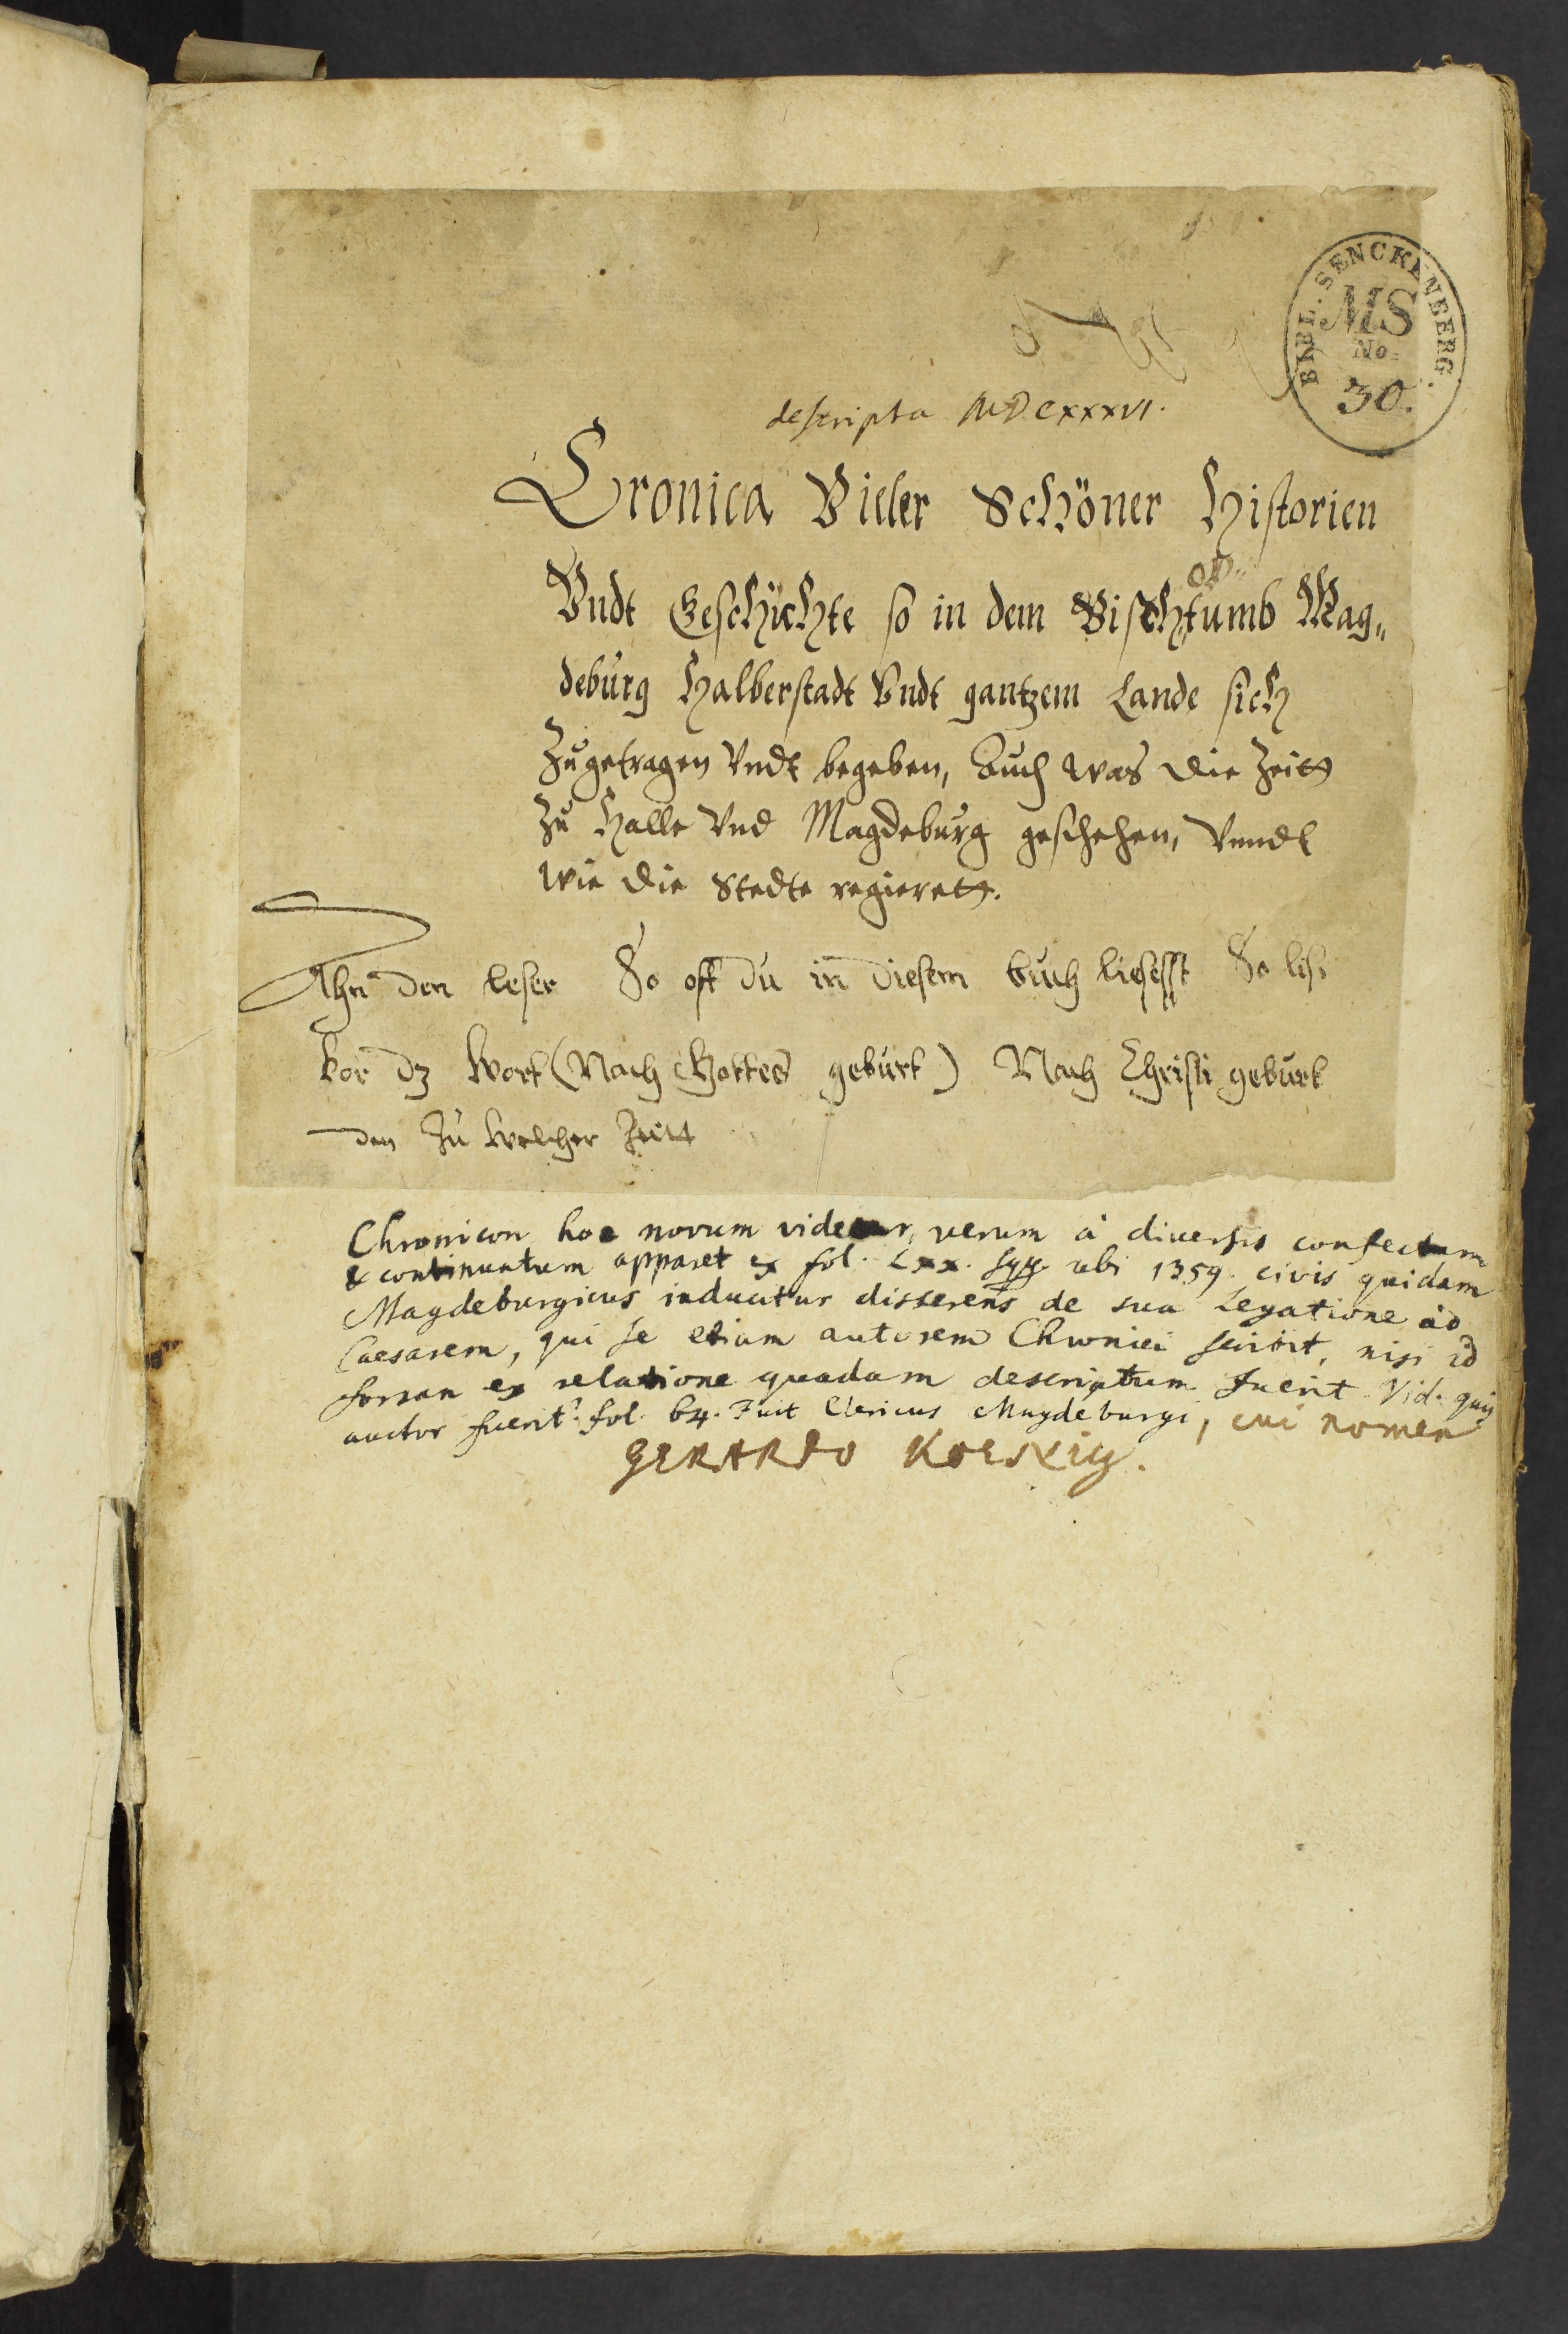 BIBL. SENCKENBERG.
MS
No.
30.
descripta MDCXXXVI.
Cronica Vieler Schöner Historien
Vndt Geschichte so in dem Bischoftumb Mag„
deburg Halberstadt Vndt gantzem Lande sich
Zugetragen Vndt begeben, Auch was die Zeitt
Zu Halle Vnd Magdeburg geschehen, Vnndt
wie die Stedte regierett.
Ahn den leser So oft du in diesem buch liesesst So lis
vor dz wort (Nach Gottes geburt) Nach Christi geburt
den Zu welcher Zeitt
Chronicon hoc novum videtur, verum à diversis confectum
& continuatum apparet ex fol. Lxx. sqq. ubi 1359. civis quidam
Magdeburgicus inducitur disserens de sua Legatione ad
Caesarem, qui se etiam autorem Chronici scribit, nisi id
forsan ex relatione quadam descriptum fuerit. Vid. quis
auctor fuerit. fol. 64. Fuit Clericus Magdeburgi, cui nomen
GERARDO